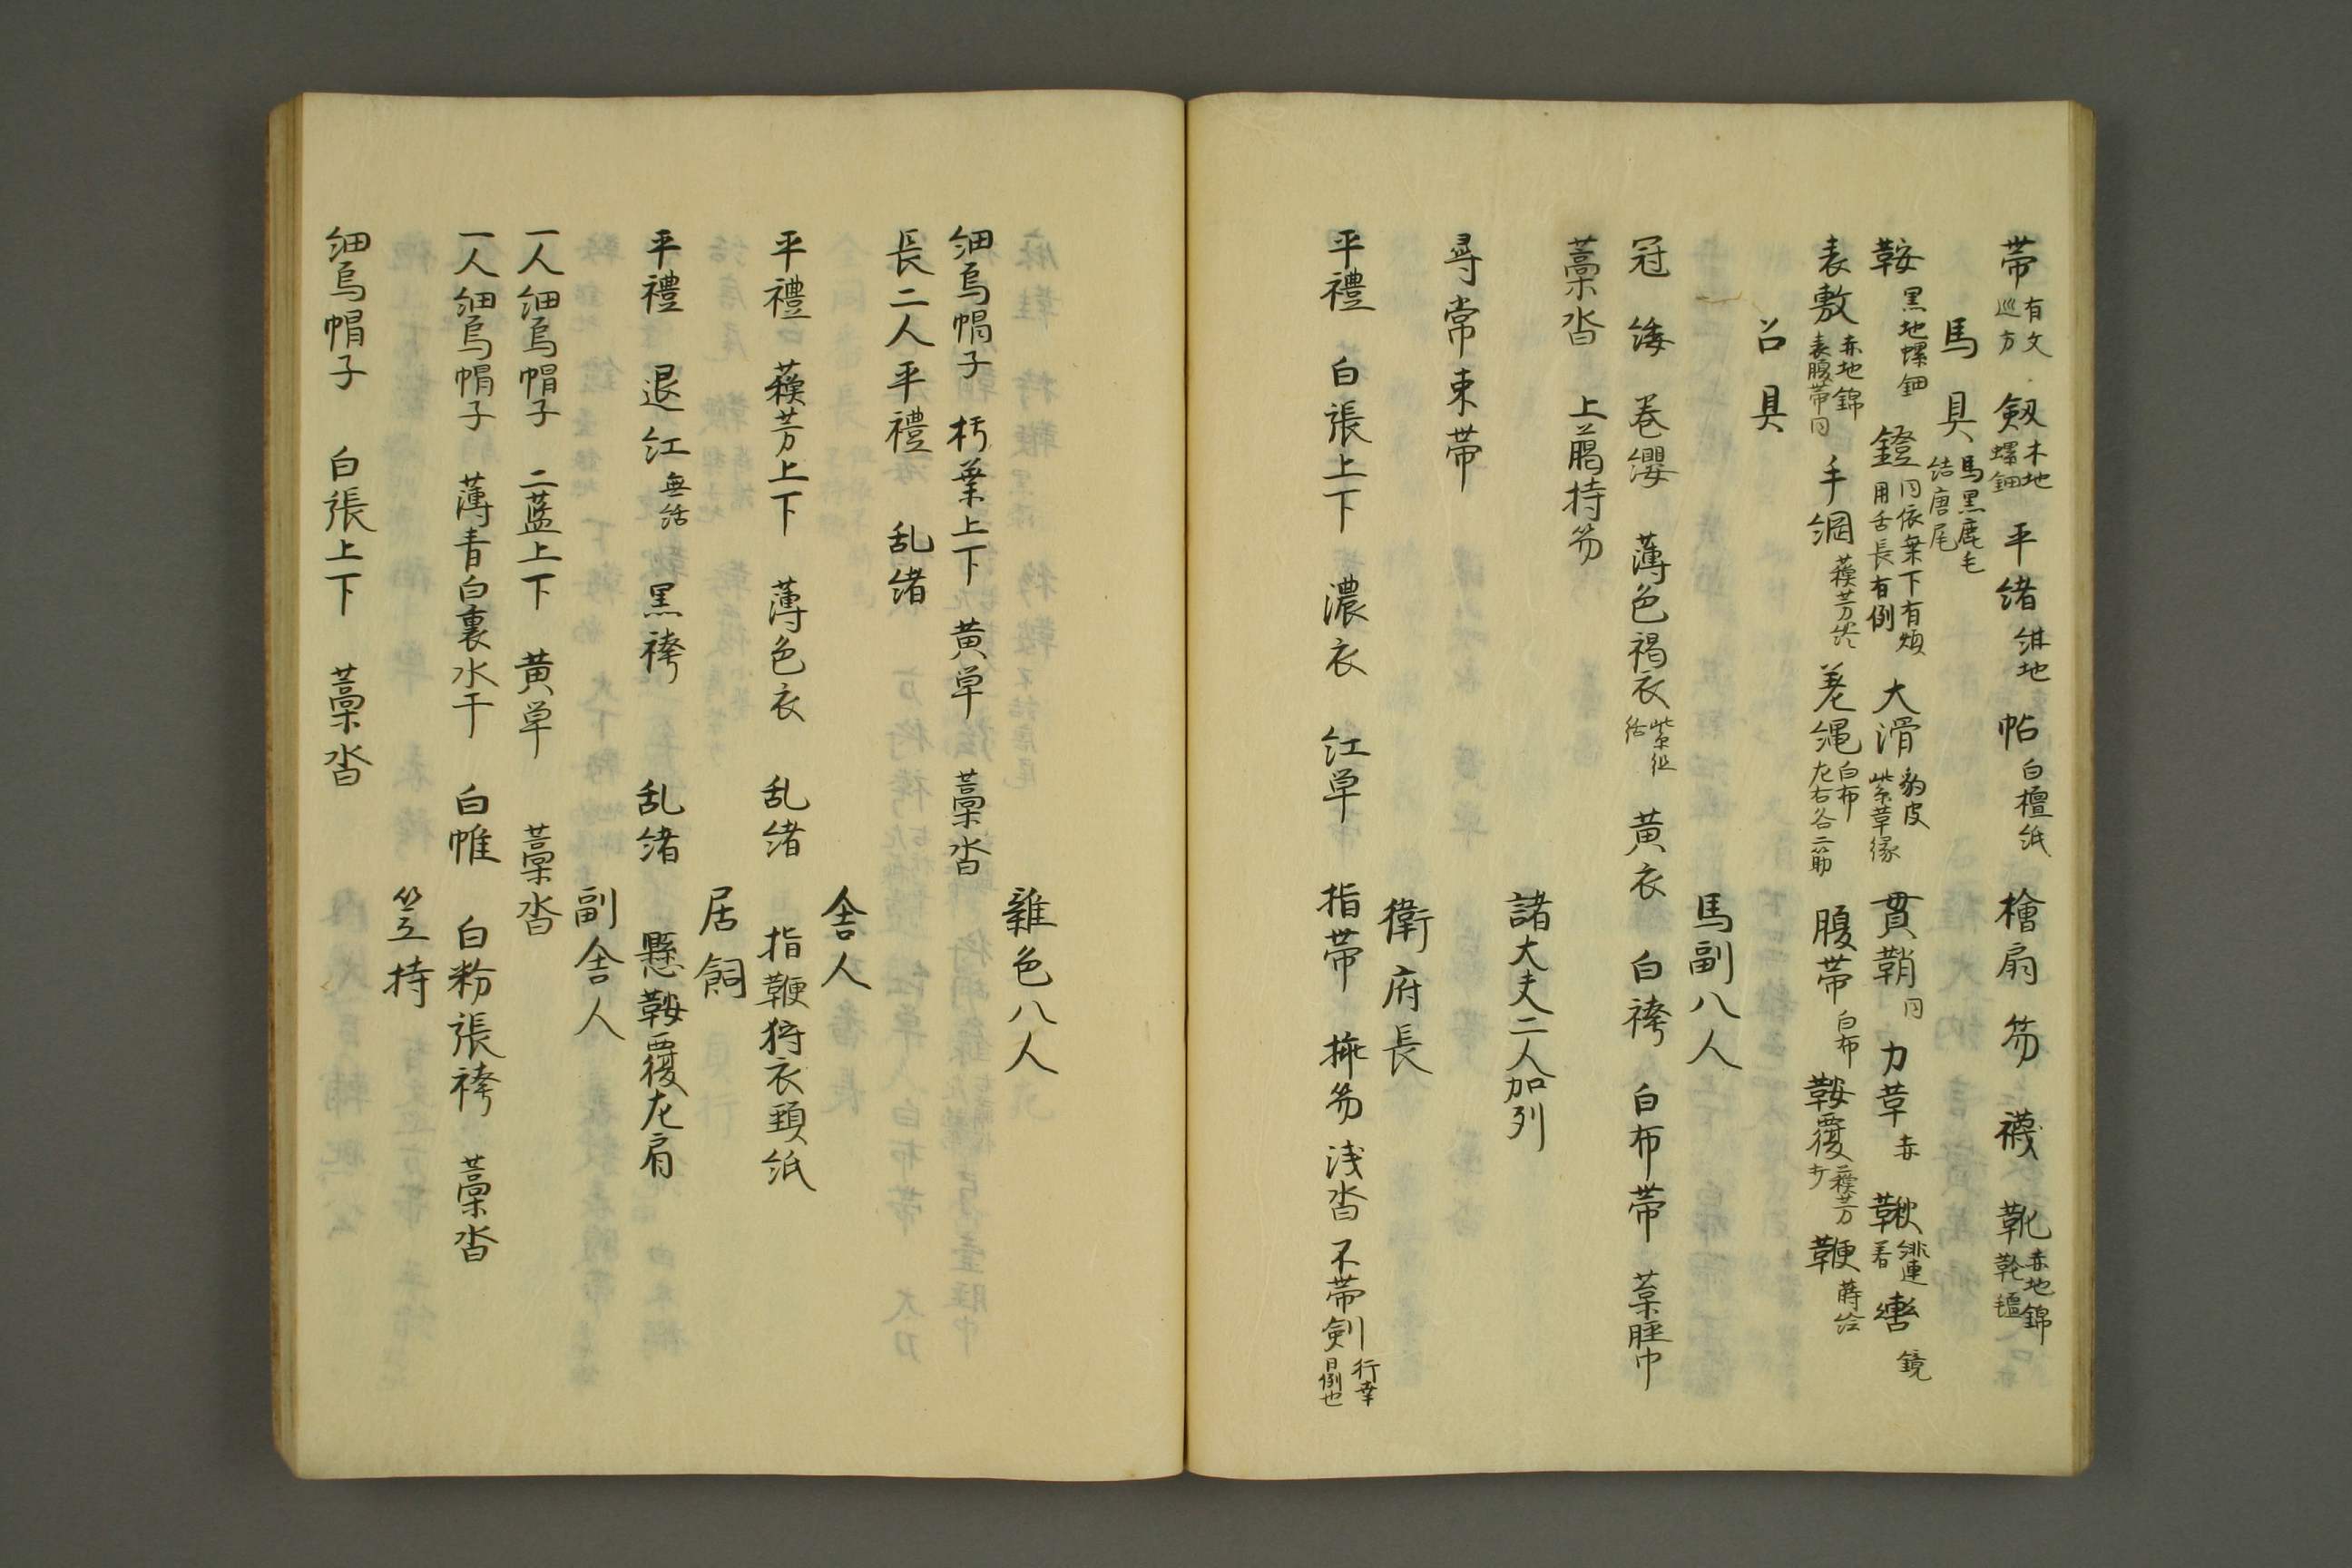 帯有文巡方 剱木地螺鈿 平緒紺地 帖白檀紙 檜扇 笏 襪 靴赤地錦靴氈
馬具馬黒鹿毛結唐尾
鞍黒地螺鈿 鐙同依葉下有煩用舌長有例 大滑豹皮紫革縁 貫鞘同 力革赤 鞦緋連着 轡鏡
表敷赤地錦表腹帯同 手綱蘓芳 差縄白布左右各二筋 腹帯白布 鞍覆蘓芳 鞭蒔絵
召具
馬副八人
冠 緌 巻纓 薄色褐衣紫組括 黄衣 白袴 白布帯 葉脛巾
藁沓 上﨟持笏
諸大夫二人加列
尋常束帯
衛府長
平禮 白張上下 濃衣 紅単 指帯 挿笏 浅沓 不帯剣行幸日例也
雜色八人
細烏帽子 朽葉上下 黄単 藁沓
長二人平禮 乱緒
舎人
平禮 蘓芳上下 薄色衣 乱緒 指鞭狩衣頚紙
居飼
平禮 退紅無括 黒袴 乱緒 懸鞍覆左肩
副舎人
一人細烏帽子 二藍上下 黄単 藁沓
一人細烏帽子 薄青白裏水干 白帷 白粉張袴 藁沓
笠持
細烏帽子 白張上下 藁沓